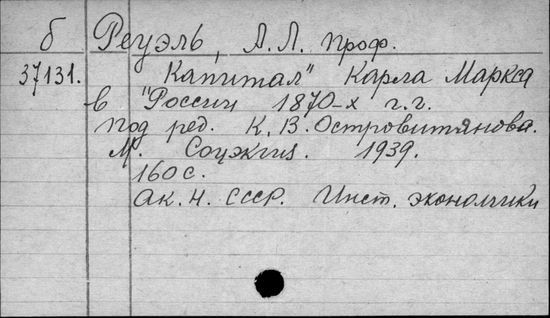 б Реуэль, А.Л. проф.
37131. Капитал" Карла Маркса
в "России 1870-х г.г.
под ред. К.В. Островитянова.
М. Соцэкгиз. 1939.
160 с.
Ак. Н. СССР. Инст. экономики